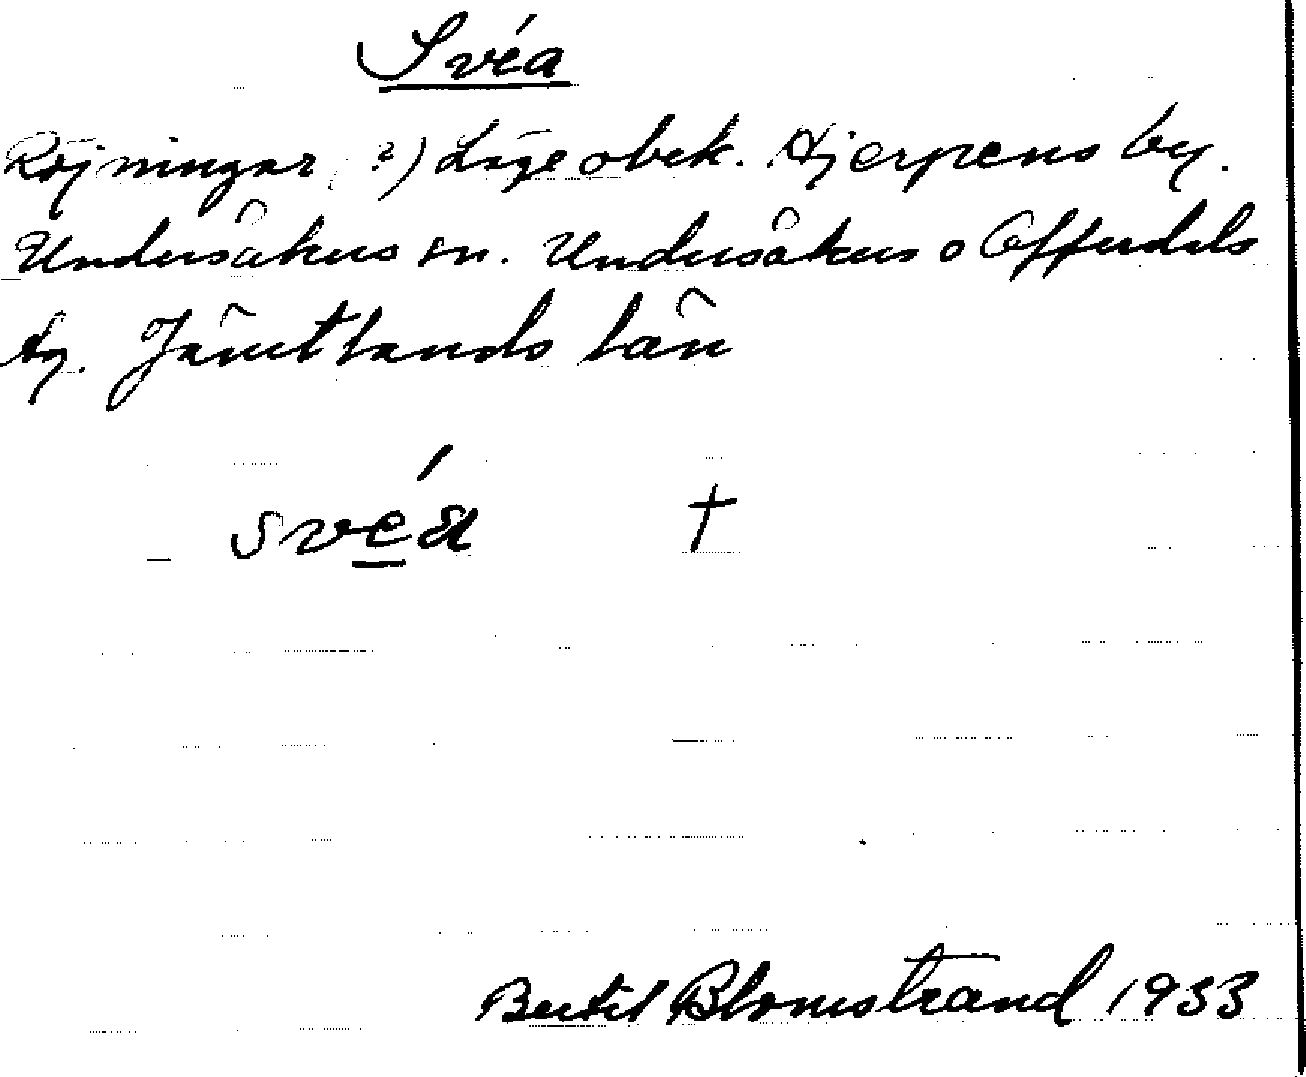 Svéa
Röjningar (?) Läge obek. Hjerpens by.
Undersåkers sn. Undersåkers o Offerdals
tg. Jämtlands län
svéa †
Bertil Blomstrand 1933